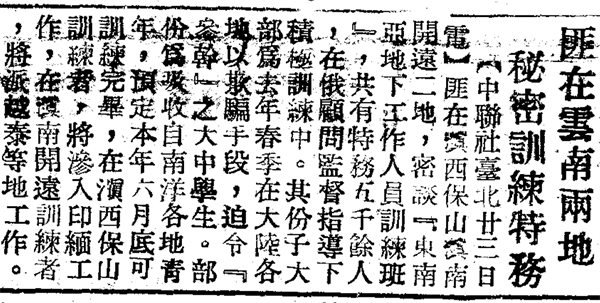 匪在雲南兩地
秘密訓練特務
【中聯社臺北廿三日
電】匪在滇西保山滇南
開遠二地,密談『東南
亞地下工作人員訓練班
』,共有特務五千餘人
,在俄顧問監督指導下
積極訓練中。其份子大
部爲去年春季在大陸各
地以欺騙手段,迫令『
參幹』之大中學生。部
份爲吸收自南洋各地青
年,預定本年六月底可
訓練完畢,在滇西保山
訓練者,將滲入印緬工
作,在滇南開遠訓練者
,將派越泰等地工作。